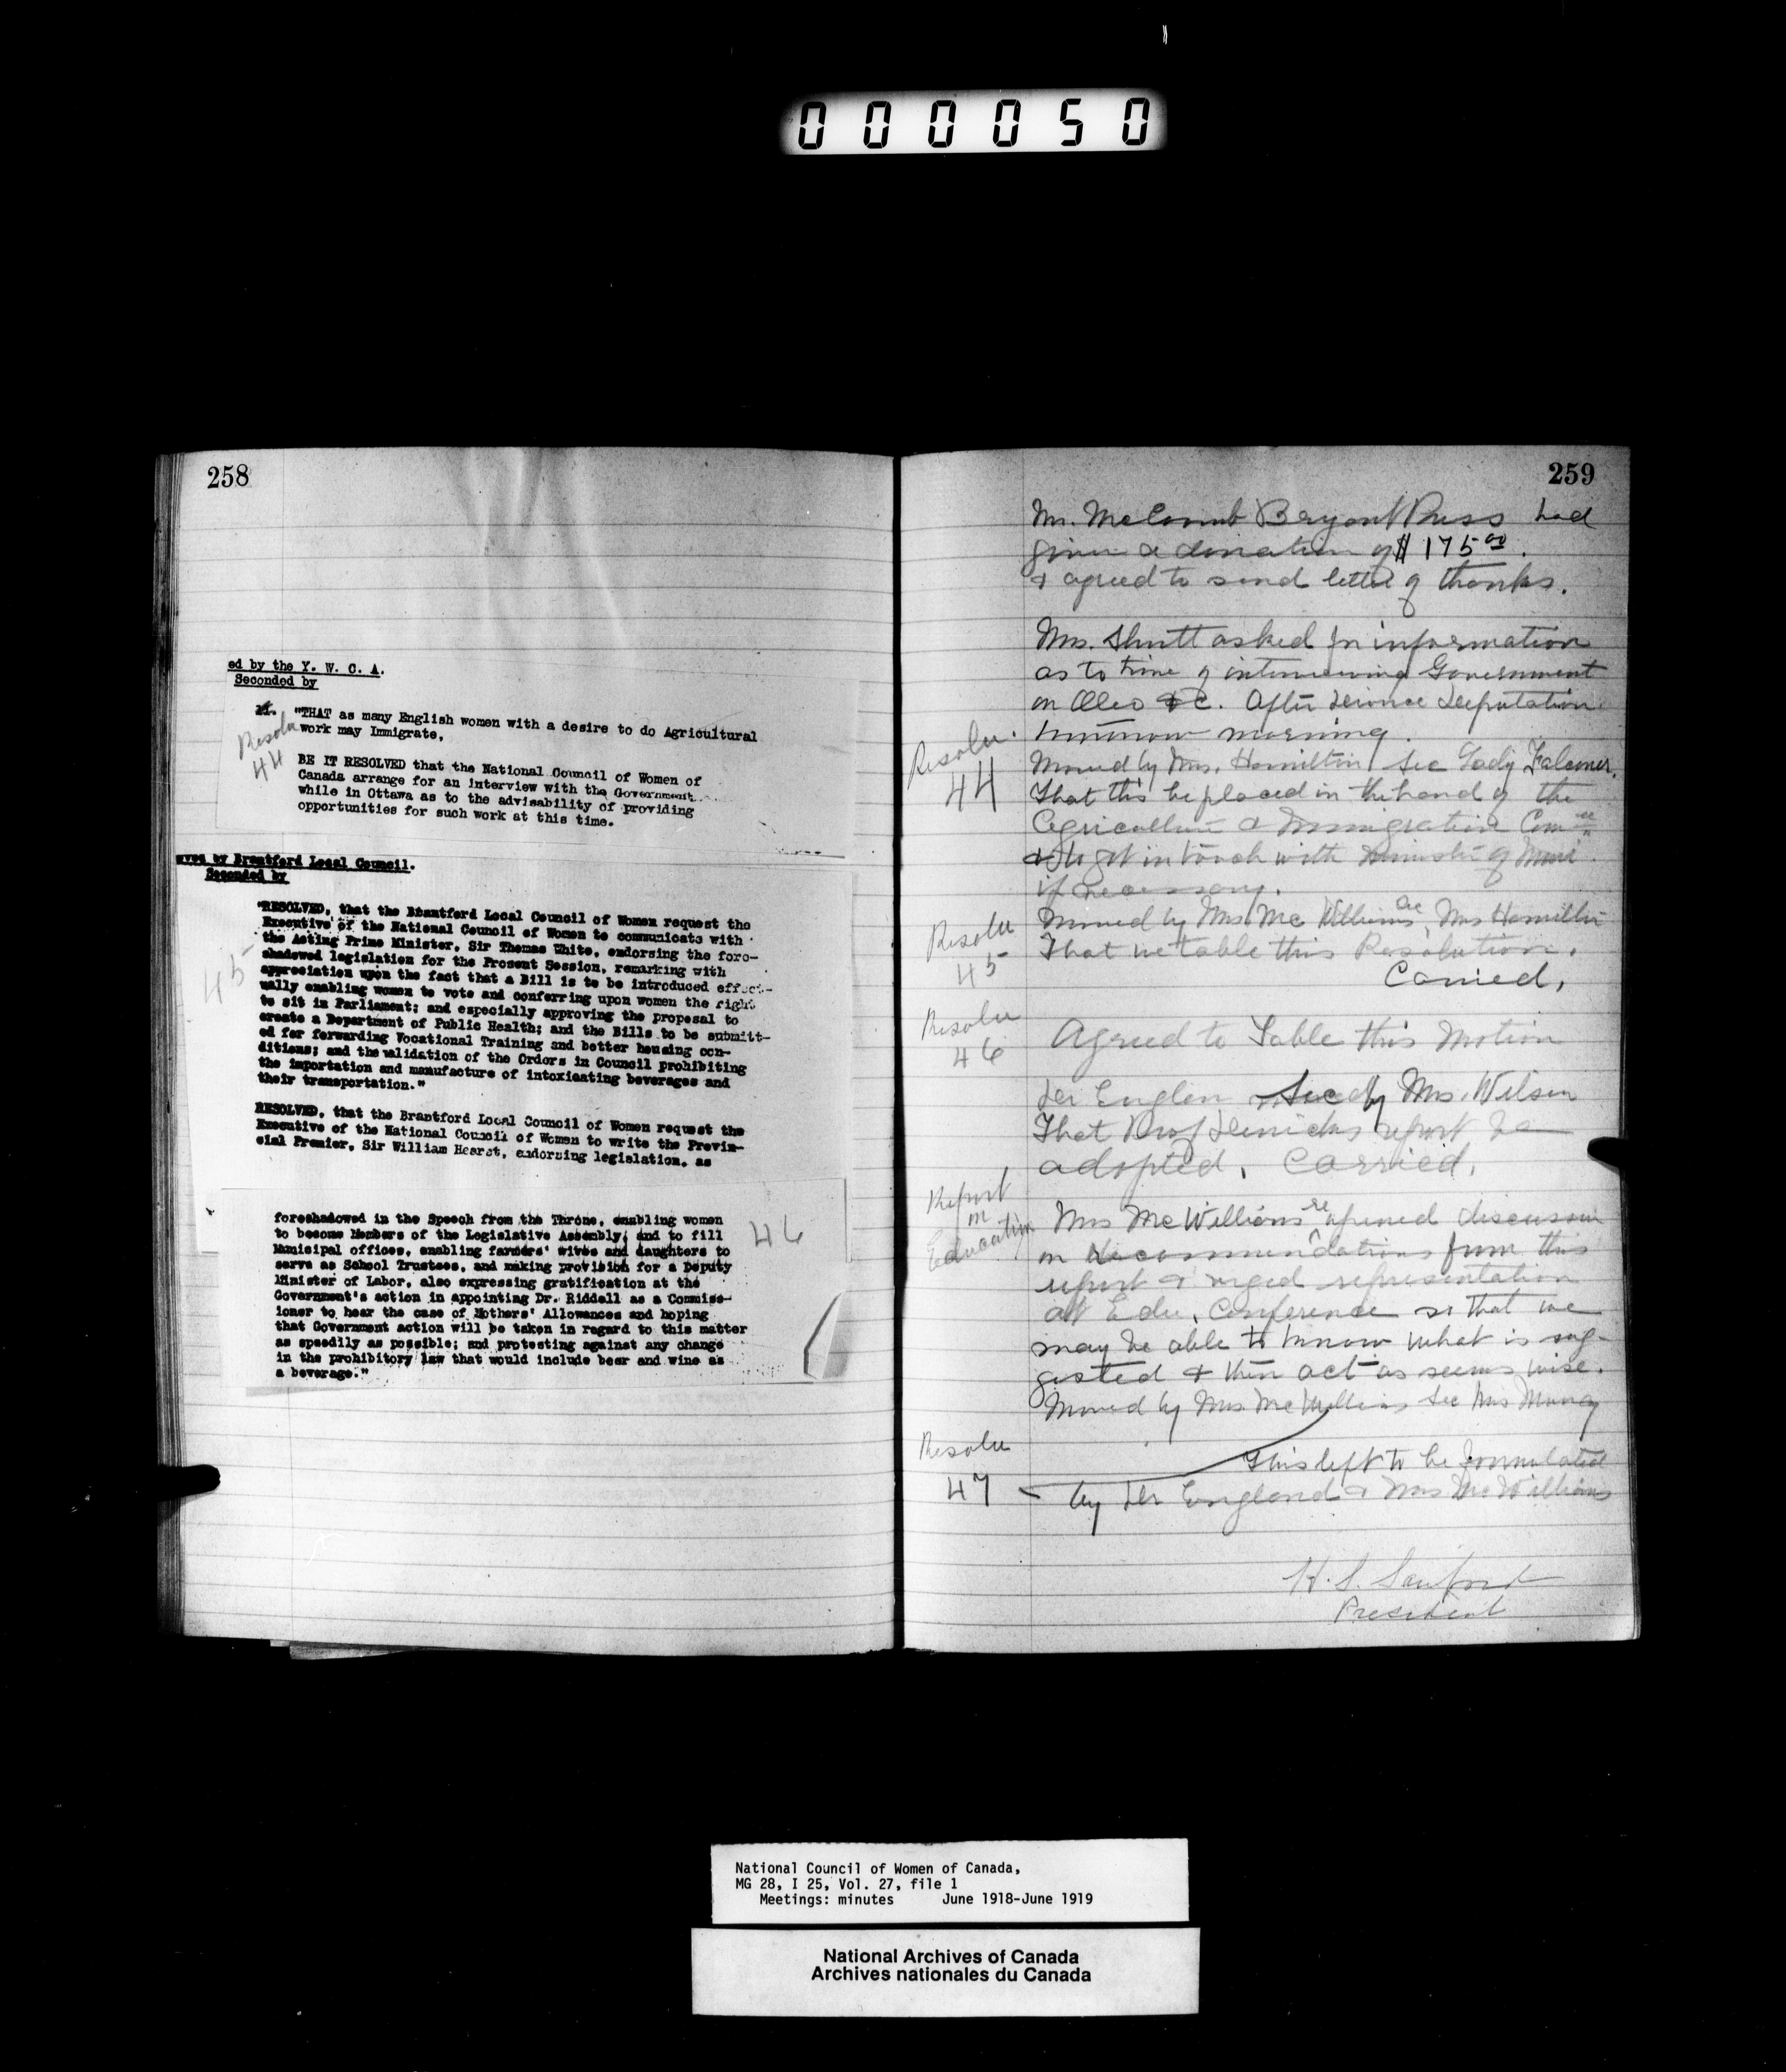 000050
258
ed by the Y. W. C. A.
Seconded by
"THAT as many English women with a desire to do Agricultural
work may Immigrate,
Resolu
44
BE IT RESOLVED that the National Council of Women of
Canada arrange for an interview with the Government
while in Ottawa as to the advisability of providing
opportunities for such work at this time.
ved by Brantford Local Council.
Seconded by
"RESOLVED, that the Brantford Local Council of Women request the
Executive of the National Council of Women to communicate with
the Acting Prime Minister, Sir Thomas White, endorsing the fore-
shadowed legislation for the Present Session, remarking with
appreciation upon the fact that a Bill is to be introduced effect-
ually enabling women to vote and conferring upon women the right
to sit in Parliament; and especially approving the proposal to
create a Department of Public Health; and the Bills to be submitt-
ed for forwarding Vocational Training and better housing con-
ditions; and the validation of the Orders in Council prohibiting
the importation and manufacture of intoxicating beverages and
their transportation."
45
RESOLVED, that the Brantford Local Council of Women request the
Executive of the National Council of Women to write the Provin-
cial Premier, Sir William Hearst, endorsing legislation, as
foreshadowed in the Speech from the Throne, enabling women
to become Members of the Legislative Assembly; and to fill
Municipal offices, enabling farmers' wives and daughters to
serve as School Trustees, and making provision for a Deputy
Minister of Labor, also expressing gratification at the
Government's action in appointing Dr. Riddell as a Commiss-
ioner to hear the case of Mothers' Allowances and hoping
that Government action will be taken in regard to this matter
as speedily as possible; and protesting against any change
in the prohibitory law that would include beer and wine as
a beverage."
46
259
Mr. McComb Bryant Press had
given a donation of $175.00.
& agreed to send letter of thanks.
Mrs. Shutt asked for information
as to time of interviewing Government
on Oleo &c. After Divorce Deputation
tomorrow morning.
Resolu.
44
Moved by Mrs. Hamilton Sec Lady Falconer.
That this be placed in the hand of the
Agriculture & Immigration Comee
& to get in touch with Minister of
if necessary.
Resolu
45
Moved by Mrs. McWilliams, Sec Mrs Hamilton
That we table this Resolution.
Carried.
Resolu
46
Agreed to Table this Motion
Dr Sec by Mrs. Wilson
That Prof report be
adopted. Carried.
Report
on
Education
Mrs McWilliams reopened discussion
on Recommendations from this
report & urged representation
at Edu. Conference so that we
may be able to know what is sug-
gested & then act as seems wise.
Moved by Mrs. McWilliams Sec Mrs Murray
Resolu
47
This left to be formulated
by Dr England & Mrs McWilliams
H. S. Sanford
President
National Council of Women of Canada,
MG 28, I 25, Vol. 27, file 1
Meetings: minutes June 1918-June 1919
National Archives of Canada
Archives nationales du Canada